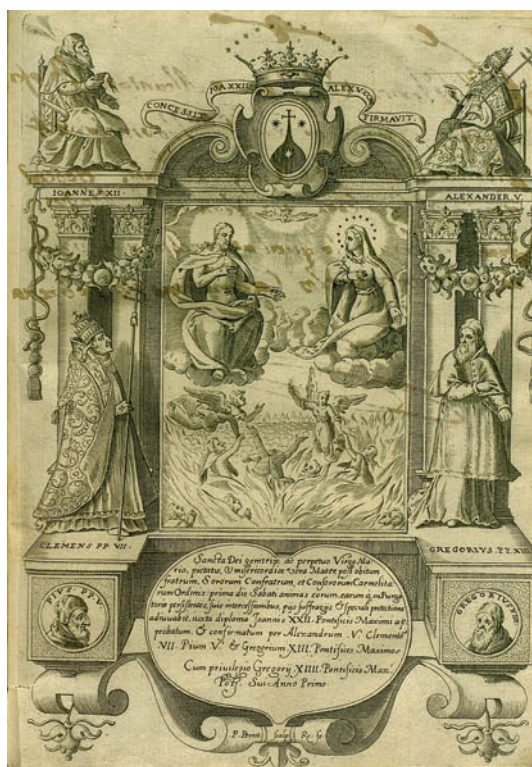 CONCESSIT IOA XXII ALEX V CON FIRMAVIT
IOANNES P XII
ALEXANDER V.
CLEMENS PP VII
GREGORIVS. PP XIII
PIVS PP V
GREGORIVS
Sancta Dei genitrix ac perpetuo Virgo Ma-
ria, pietatis, & misericordiæ vera Mater post obitum
fratrum, Sororum Confratrum, et Consororum Carmelita
rum Ordinis prima die Sabati animas eorum, earum q, in Purga
torio persistentes, suis intercessionibus, pijs suffragijs & speciali protectione
adiuuabit, iuxta diploma Joannis XXII. Pontificis Maximi ap
probatum, & confirmatum per Alexandrum. V. Clementē
VII. Pium V. & Gregorium XIII. Pontifices Maximos
Cum priuilegio Gregorij XIIII. Pontificis Max.
Pont. Sui Anno Primo